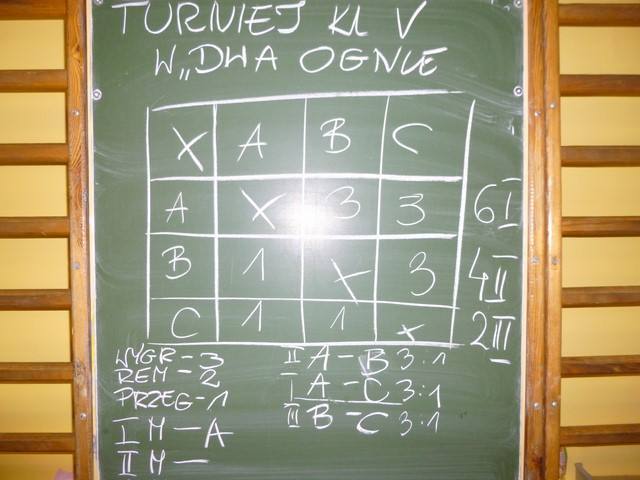 TURNIEJ KL V
W „DWA OGNIE
X A B C
A X 3 3 6 I
B 1 X 3 4 II
C 1 1 X 2 III
WYGR - 3
REM - 2
PRZEG - 1
I M - A
II M -
II A - B 3:1
I A - C 3:1
III B - C 3:1